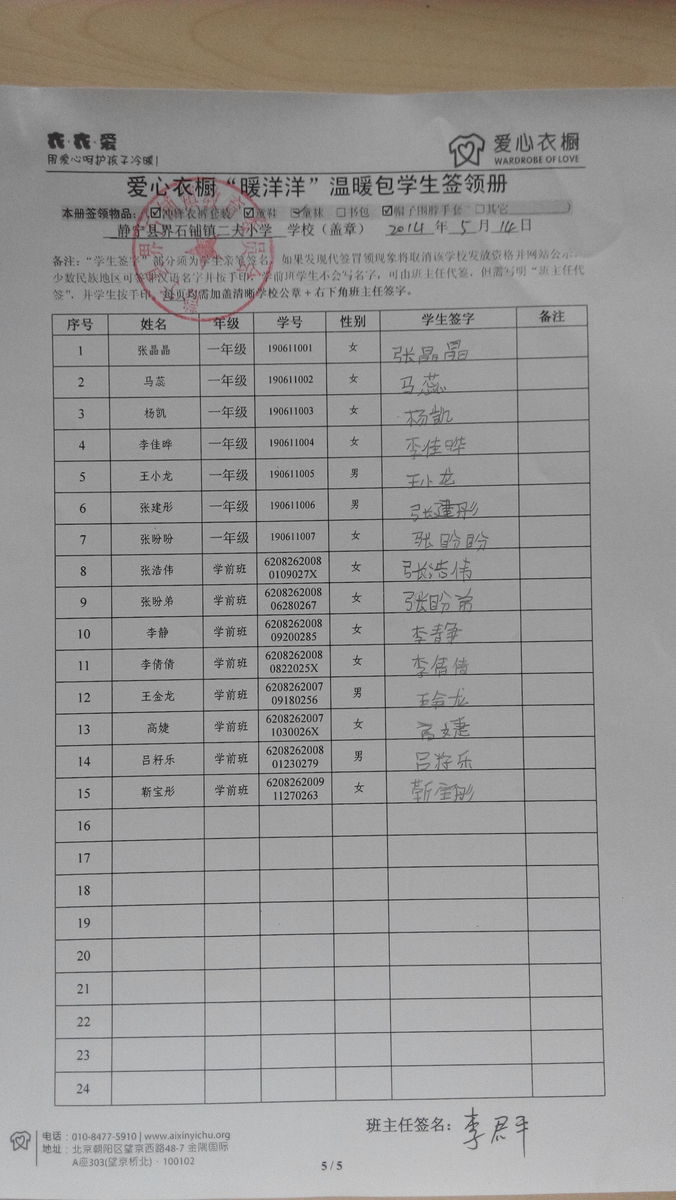 衣·衣·爱
用爱心呵护孩子冷暖!
爱心衣橱
WARDROBE OF LOVE
爱心衣橱“暖洋洋”温暖包学生签领册
本册签领物品:☑冲锋衣裤套装 ☑童鞋 ☑童袜 □书包 ☑帽子围脖手套 □其它
静宁县界石铺镇二夫小学 学校(盖章) 2014 年 5 月 14 日
备注:“学生签字”部分须为学生亲笔签名,如果发现代签冒领现象将取消该学校发放资格并网站公示
少数民族地区可签非汉语名字并按手印。学前班学生不会写名字,可由班主任代签,但需写明“班主任代
签”,并学生按手印。每页均需加盖清晰学校公章+右下角班主任签字。
序号 姓名 年级 学号 性别 学生签字 备注
1 张晶晶 一年级 190611001 女 张晶晶
2 马蕊 一年级 190611002 女 马蕊
3 杨凯 一年级 190611003 女 杨凯
4 李佳晔 一年级 190611004 女 李佳晔
5 王小龙 一年级 190611005 男 王小龙
6 张建彤 一年级 190611006 男 张建彤
7 张盼盼 一年级 190611007 女 张盼盼
8 张浩伟 学前班 6208262008 0109027X 女 张浩伟
9 张盼弟 学前班 6208262008 06280267 女 张盼弟
10 李静 学前班 6208262008 09200285 女 李静
11 李倩倩 学前班 6208262008 0822025X 女 李倩倩
12 王金龙 学前班 6208262007 09180256 男 王金龙
13 高婕 学前班 6208262007 1030026X 女 高婕
14 吕籽乐 学前班 6208262008 01230279 男 吕籽乐
15 靳宝彤 学前班 6208262009 11270263 女 靳宝彤
16
17
18
19
20
21
22
23
24
班主任签名:李君平
电话:010-8477-5910 | www.aixinyichu.org
地址:北京朝阳区望京西路48-7 金隅国际
A座303(望京桥北)· 100102
5 / 5